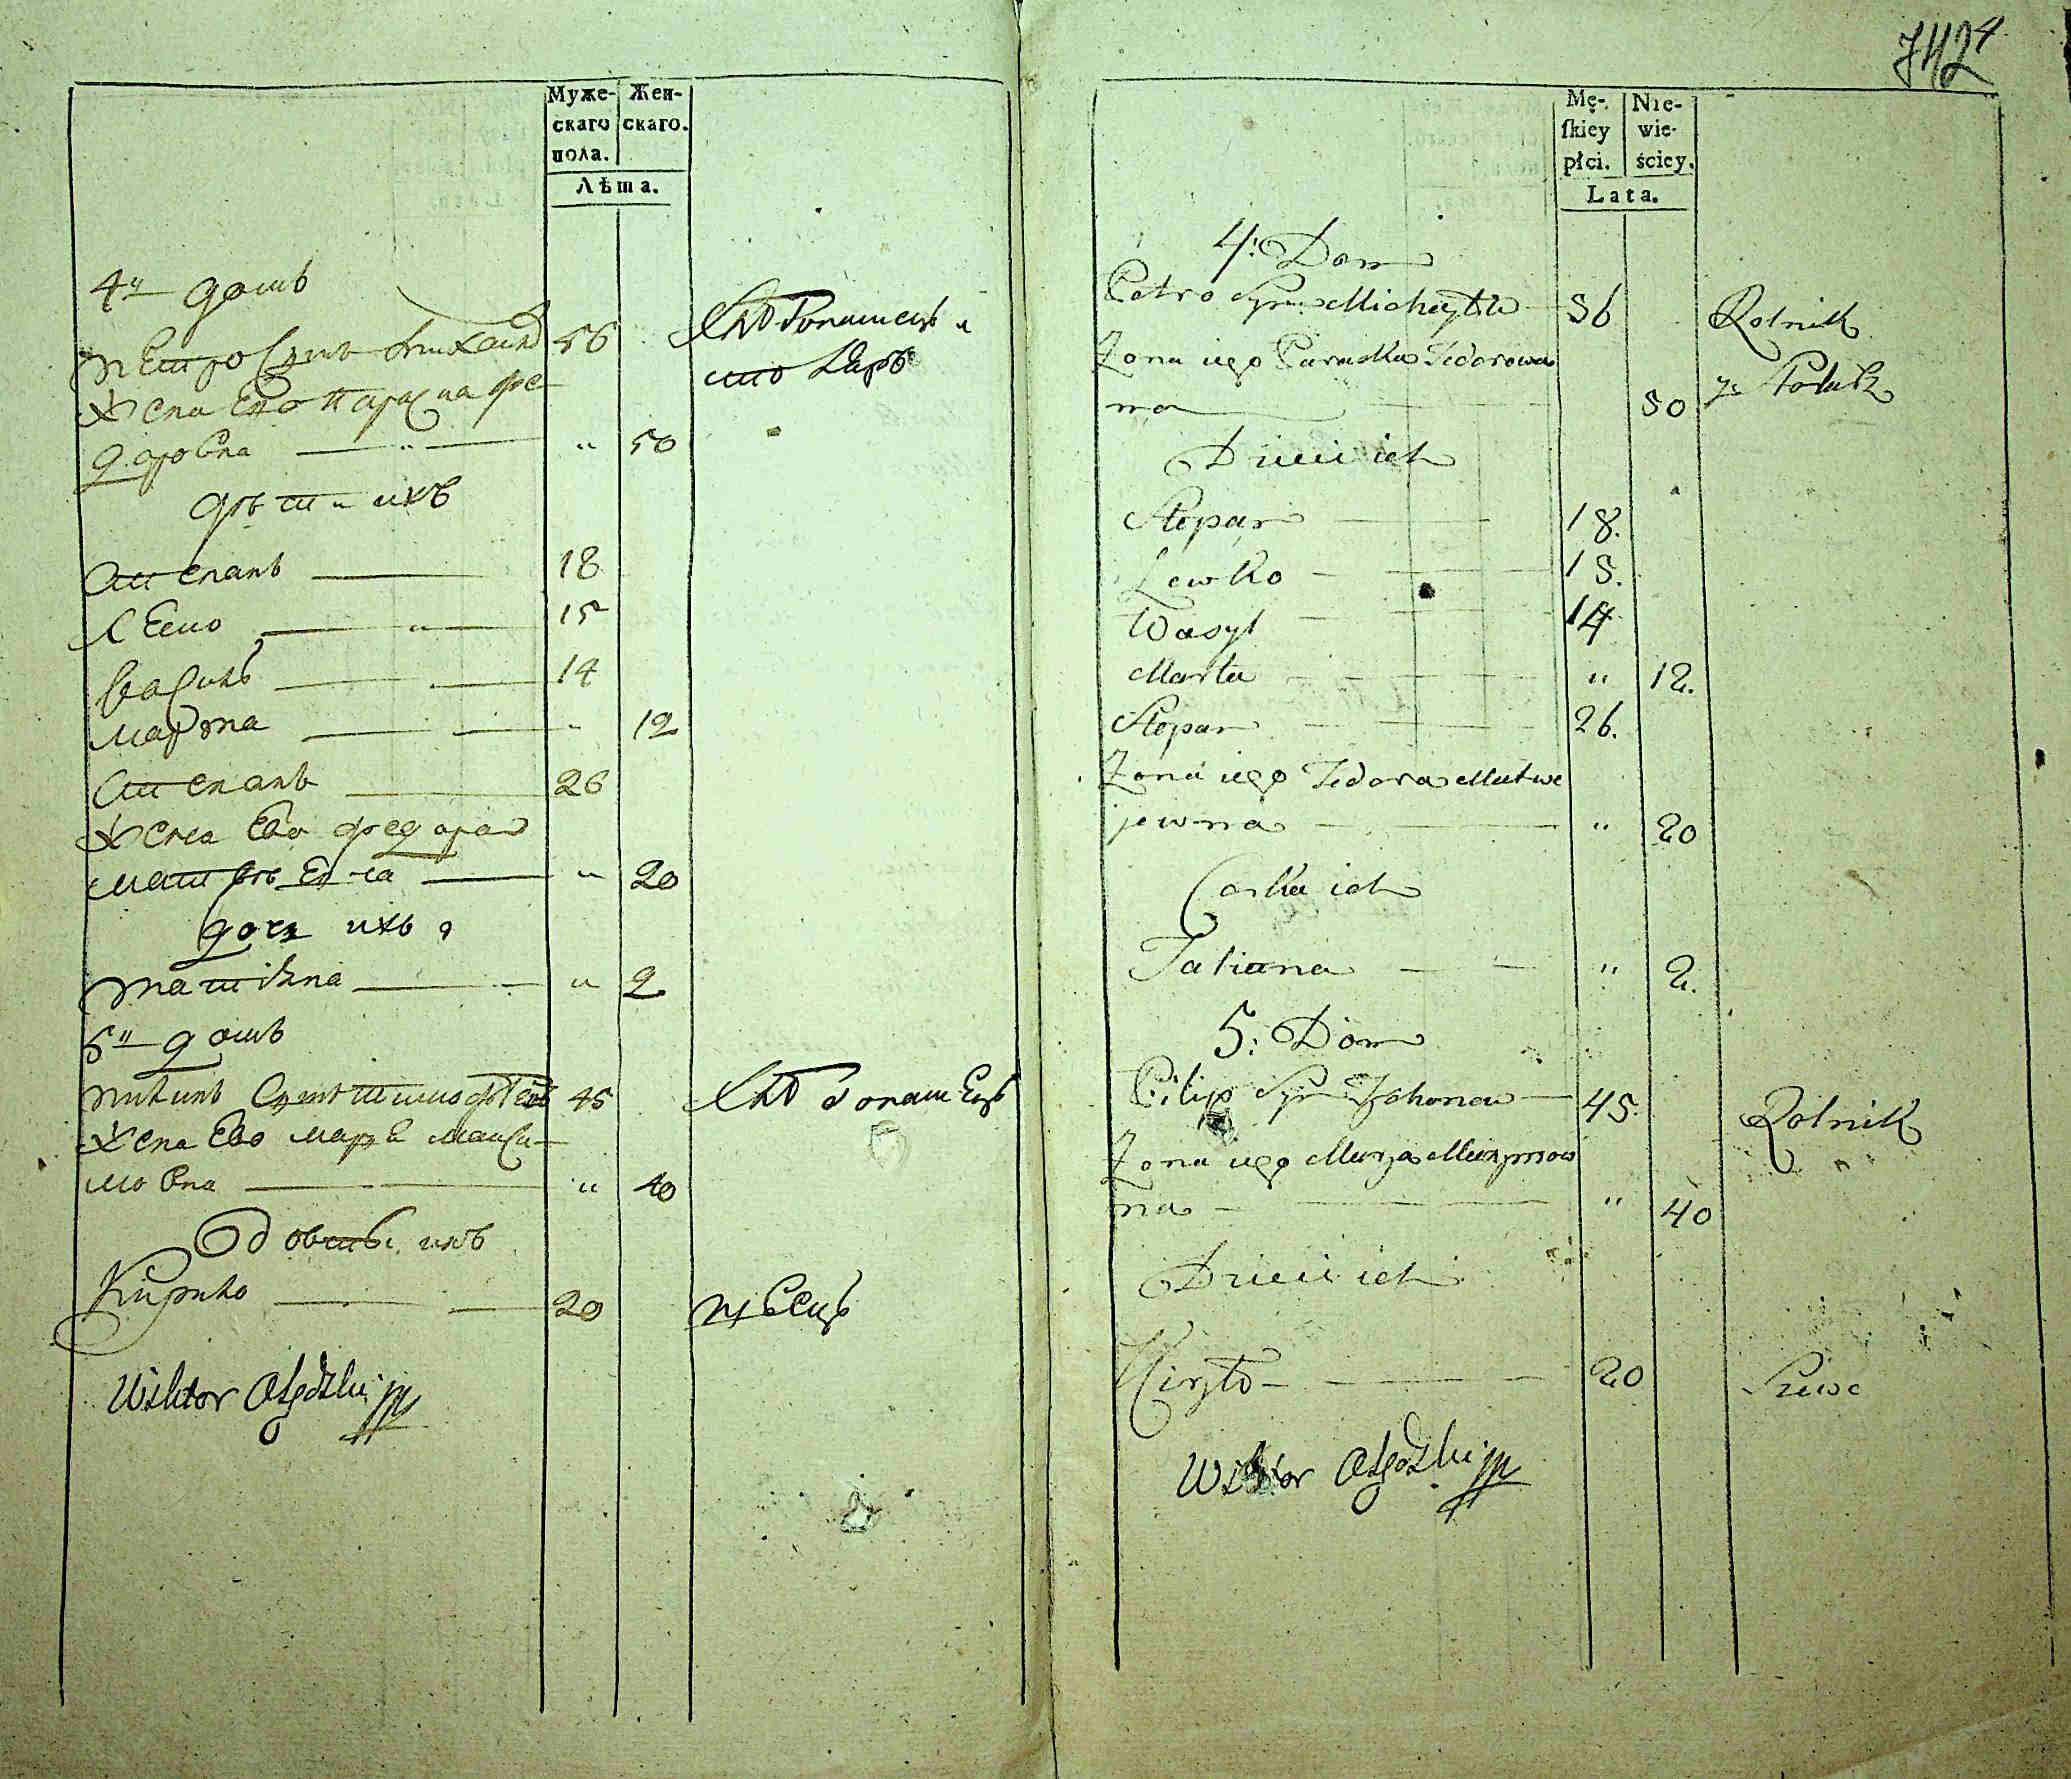 Муже-
скаго
пола.
Жен-
скаго.
Лѣта.
4й домъ
Петро сынъ Михаила 56
Жена Ево Параска Фе-
доровна 50
дѣти ихъ
Степанъ 18
Левко 15
Василь 14
Марта 12
Степанъ 26
Жена Ево Федора
Матвѣевна 20
дочь ихъ
Татiяна 2
5й домъ
Пилипъ сынъ 45
Жена Ево Маря Макси-
мовна 40
ихъ
Кирило 20
Wiktor
7424
Mę-
ſkiey
płci.
Nie-
wie-
ściey.
Lata.
4: Dom
Petro Syn Michayła 56 Rolnik
Zona iego Paraska Fedorow
na 50 y Stolarz
Dzieci ich
Stepan 18.
Lewko 15.
Wasyl 14
Marta " 12.
Stepan 26.
Zona iego Fedora Matwe
jewna " 20
Corka ich
Tatiana " 2.
5: Dom
Pilip Syn 45. Rolnik
Zona iego Marya Maxymow
na " 40
Dzieci ich
Kiryło 20 Szewc
Wiktor